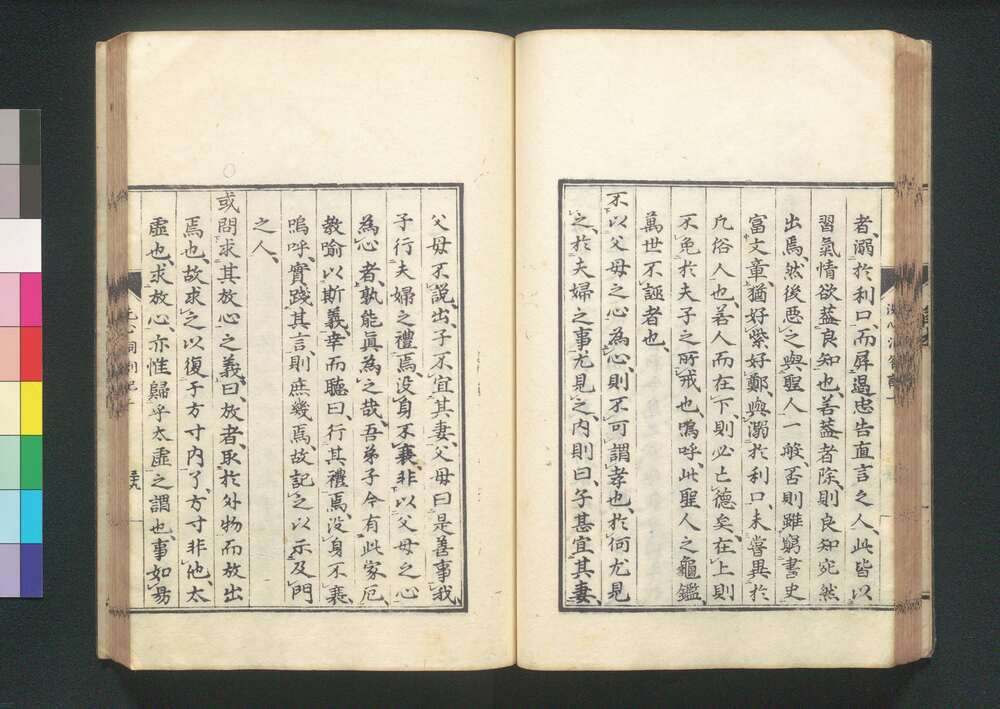 者、溺於利口、而屏過忠告直言之人、此皆以
習氣情欲蓋良知也、若蓋者除、則良知宛然
出焉、然後惡之與聖人一般、否則雖窮書史
富文章、猶好紫好鄭、與溺於利口、未嘗異於
凡俗人也、若人而在下、則必亡德矣、在上則
不免於夫子之所戒也、嗚呼、此聖人之龜鑑、
萬世不誣者也
不以父母之心為心、則不可謂孝也、於何尤見
之、於夫婦之事尤見之、內則曰、子甚宜其妻、
父母不說、出、子不宜其妻、父母曰是善事我、
子行夫婦之禮焉、没身不衰、非以父母之心
為心者、孰能眞為之哉、吾弟子今有此家厄、
教喻以斯義、幸而聽曰、行其禮焉、没身不衰、
嗚呼、實踐其言、則庶幾焉、故記之以示及門
之人、
或問求其放心之義、曰、放者、取於外物而放出
焉也、故求之以復于方寸內了、方寸非他、太
虛也、求放心、亦惟歸乎太虛之謂也、事如易